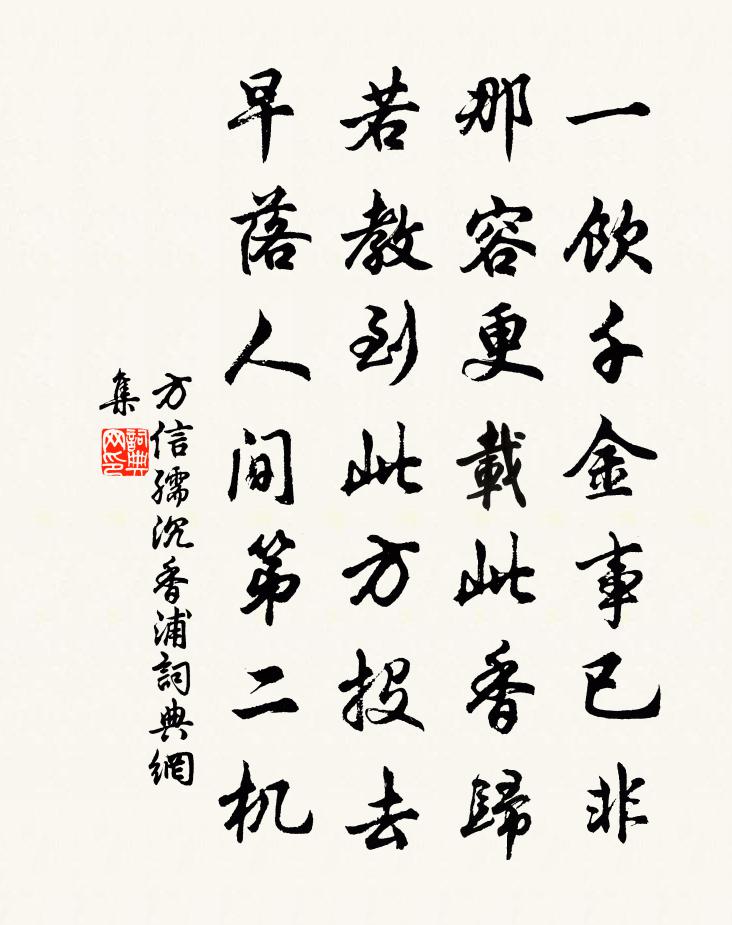 一飲千金事已非
那容更載此香歸
若教到此方投去
早落人間第二机
方信孺沉香浦詞典網
集
詞典
网印